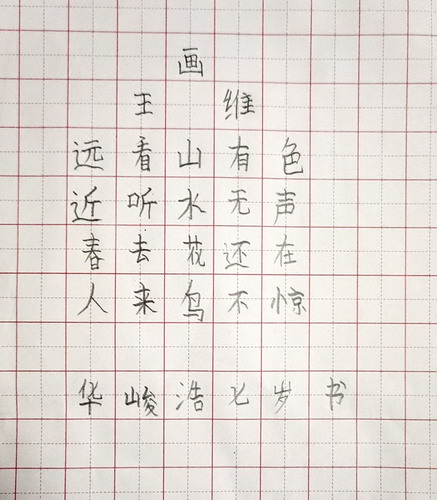 画
王维
远看山有色
近听水无声
春去花还在
人来鸟不惊
华峻浩七岁书